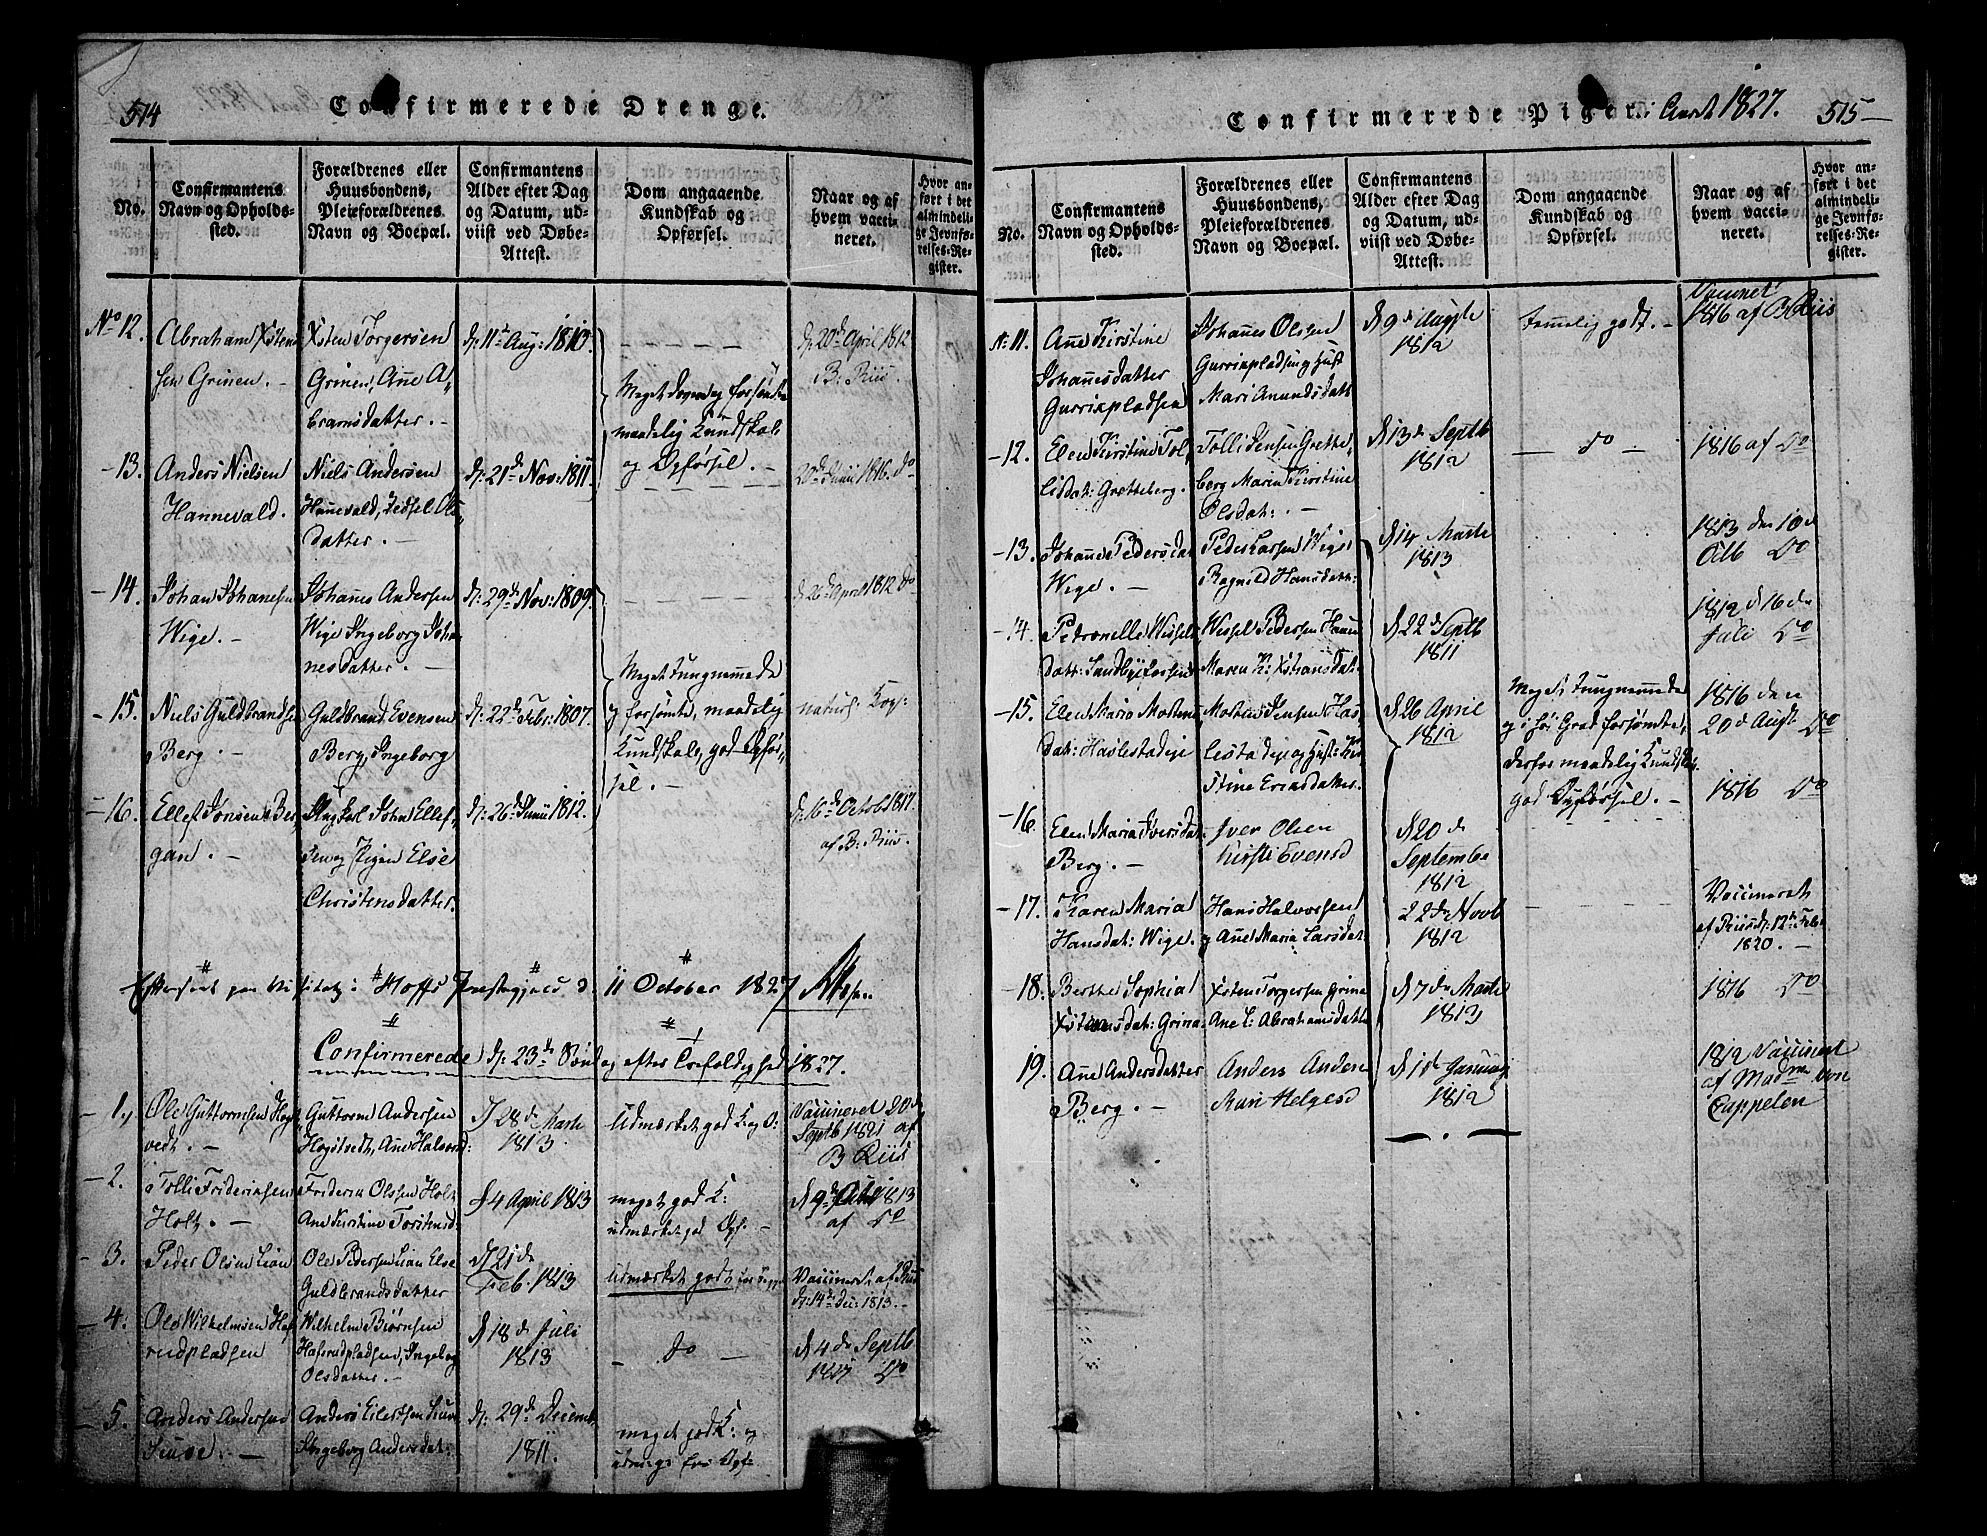 514
Confirmerede Drenge.
No.
Confirmantens Navn og Opholds-sted.
Forældrenes eller Huusbondens, Pleieforældrenes Navn og Boepæl.
Confirmantens Alder efter Dag og Datum, ud-viist ved Døbe-Attest.
Dom angaaende Kundskab og Opførsel.
Naar og af hvem vacci-neret.
Hvor an-ført i det almindeli-ge Jevnfø-relses-Re-gister.
No 12.
Abraham Xstens
sen Grinen. –
Xsten Torgersen
Grinen, Ane A,
bramsdatter. –
d: 11te Aug: 1810.
d: 20de April 1812
B: Riis.
Meget
og forsømte
maadelig Kundskab
og Opførsel. –
– 13.
Anders Nielsen
Hannevald.
Niels Andersen
Hanevald,
datter. –
d: 21de Nov: 1811.
20de Junii 1816. do
– 14.
Johan Johanesen
Wige. –
Johanes Andersen
Wige Ingeborg Joha
nesdatter. –
d: 29de Nov: 1809.
d: 26de April 1812 do
Meget Tungnemmede
og forsømte, maadelig
Kundskab, god Opfør,
sel. –
– 15.
Niels Guldbrandsen
Berg. –
Guldbrand Evensen
Berg, Ingeborg
d: 22de Febr: 1807.
naturl: Kop:
– 16.
Ellef Jonsen Ber,
gan. –
Ungkarl John Ellef,
sen og Pigen Else
Christensdatter.
d: 26de Junii 1812.
d: 16de Octob 1817.
af B: Riis.
Hoffs Præstegjeld d. 11 October 1827
Confirmerede d: 23de Sønd
ag efter Trefoldighed 1827.
– 1.
Ole Guttormsen Hogt
vedt. –
Guttorm Andersen
Hogtvedt, Ane Halvorsd:
d 28de Marts
1813.
Udmærket god K og O:
Vaccineret 20de
Septb 1821 af
B Riis
– 2.
Tolli Fridericksen
Holt. –
Friderich Olssen Holt
Ane Kirstine Torstensd.
d 4 April 1813
meget god K:
udmærket god Opf. –
d 9de 1813
af do
– 3.
Peder Olsen Lian
Ole Pedersen Lian Else
Guldbrandsdatter
d 21de
Feb. 1813
Udmærket godt
Vaccineret af Riis
d: 14de Dec: 1813. –
– 4.
Ole Wilhelmsen Haf
rudpladsen
Wilhelm Biørnsen
Hafsrudpladsen, Ingeborg
Olsdatter. –
d 18de Juli
1813
– do –
d 4de Septb
1817 do
– 5.
Anders Andersen
Anders Eilertsen
Ingeborg Andersdat:
d: 29de Decemb
1811.
meget god K: og
Opf:
Confirmerede Piger i Aaret 1827.
515
No.
Confirmantens Navn og Opholds-sted.
Forældrenes eller Huusbondens, Pleieforældrenes Navn og Boepæl.
Confirmantens Alder efter Dag og Datum, ud-viist ved Døbe-Attest.
Dom angaaende Kundskab og Opførsel.
Naar og af hvem vacci-neret.
Hvor an-ført i det almindeli-ge Jevnfø-relses-Re-gister.
No 11.
Ane Kirstine
Johannesdatter
Gurrixpladsen
Johanes Olsen
Gurrixpladsen og Hust
Mari Amundsdatt
d 9de Augste
1812
temmelig godt. –
Vaccinet
1816 af B Riis
– 12.
Elen Kirstine Tol,
lisdat: Gretteberg.
Tolli Jensen Grette,
berg Maria Kirstine
Olsdat: –
d 13de Septb
1812
– do –
1816 af do
– 13.
Johane Pedersdat
Wige. –
Peder Larsen Wige
Ragnild Hansdatt:
d 14 Marts
1813
1813 den 10de
Ocb do
– 14.
Petronelle Wessels
datt: Sandbyeforsen
Wessel Pedersen
Maren K: Xstiansdat
d 22de Septb
1811
1812 d 16de
Juli do
– 15.
Elen Maria Mortens
dat: Haslestadeje
Morten Jensen Has
lestadeje og Hust: Kir
stine Ericsdatter.
d 26 April
1812
Meget Tungnemmede
og i høi Grad forsømte,
derfor maadelig Kundskab,
god Opførsel. –
1816 den
20de Augst do
– 16.
Elen Maria Iversdat
Berg. –
Iver Olsen
Kirsti Evensd
d 20de
Septembe
1812
1816 do
– 17.
Karen Maria
Hansdat: Wige.
Hans Halvorsen
og Ane Maria Larsdat:
22de Novb
1812
Vaccineret
af Riis d: 12te Feb:
1820. –
– 18.
Berthe Sophia
Xstensdat: Grina
Xsten Torgersen Grina
Ane L: Abrahamsdatte
d 7de Marts
1813
1816 do
19.
Ane Andersdatter
Berg. –
Anders Anders
Kari Helgesd
d 1ste Januarj
1812
1812 Vaccineret
af Madme von
Cappelen